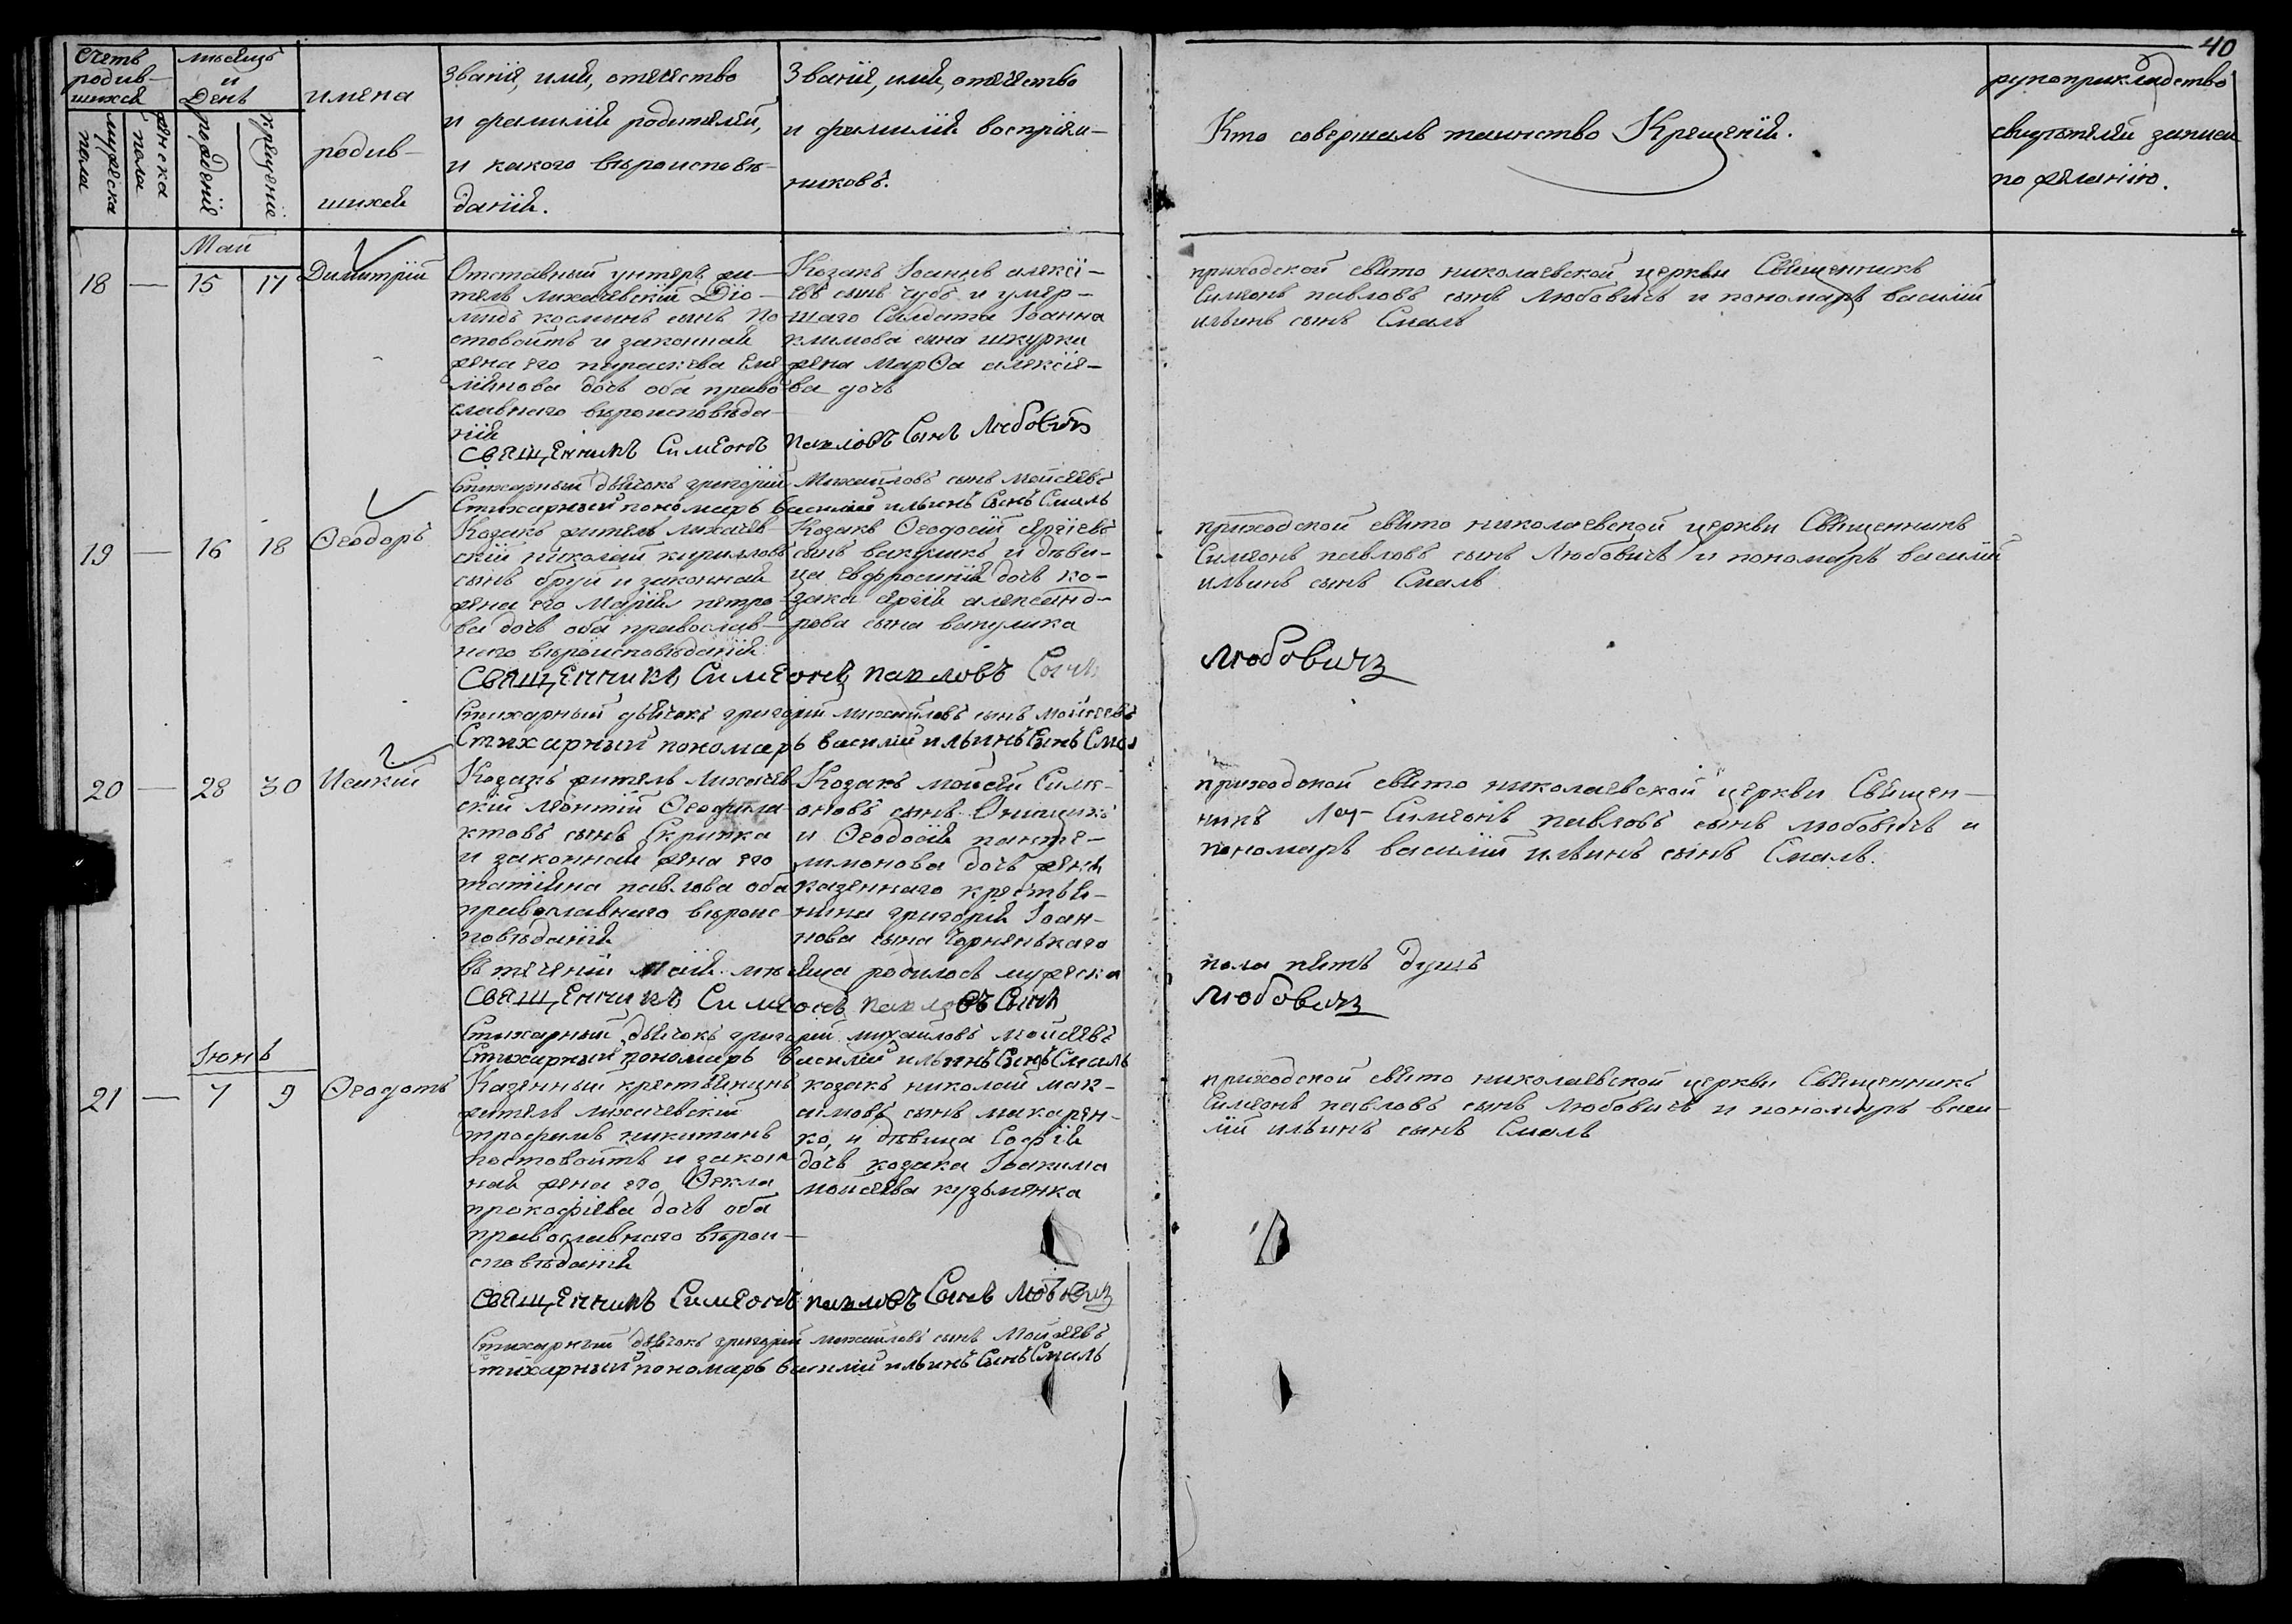 40
Счетъ родив-шихся
мѣсяцъ и День
мужеска пола
женска пола
рождения
крещение
имена
родив-
шихся
Звание, имя, отечество
и фамилия родителей,
и какого вѣроисповѣ-
дания.
Звание, имя, отечество
и фамилия восприем-
никовъ.
Кто совершалъ таинство Крещения.
рукоприкладство
свидѣтелей записи
по желанию.
Май
18 — 15 17 Димитрий
Отставный унтеръ жи-
тель лихачевский Дио-
мидъ косминъ сынъ По-
стовойтъ и законная
жена его параскева Еме-
лиянова дочь оба право
славнаго вѣроисповѣда-
ния
Козакъ Іоаннъ алексі-
евъ сынъ чубъ и умер-
шаго Салдата Іоанна
климова сына шкурки
жена марѳа алексіе-
ва дочь
приходской свято николаевской церкви Священникъ
Симеонъ павловъ сынъ Любовичъ и пономарь василій
ильинъ сынъ Смаль
Священникъ Симеонъ павловъ Сынъ Любовичъ
Стихарный дьячокъ григорій Михайловъ сынъ Мойсеевъ
Стихарный пономарь василий ильинъ Сынъ Смаль
19 — 16 18 Ѳеодоръ
Козакъ житель лихачев
ский николай кирилловъ
сынъ бруй и законная
жена его Мария петро-
ва дочь оба православ-
наго вѣроисповѣдания
Козакъ Ѳеодосій сергіевъ
сынъ вакуликъ и дѣви-
ца евфросиния дочь ко-
зака сергія александ-
рова сына вакулика
приходской свято николаевской церкви Священникъ
Симеонъ павловъ сынъ Любовичъ и пономарь василій
ильинъ сынъ Смаль
Священникъ Симеонъ павловъ Сынъ Любовичъ
Стихарный дьячокъ григорій михайловъ сынъ мойсеевъ
Стихарный пономарь василий ильинъ Сынъ Смал
20 — 28 30 Исакий
Козакъ житель лихачев
ский леонтій Ѳеофила-
ктовъ сынъ Скрипка
и законная жена его
татияна павлова оба
православнаго вѣроис-
повѣдания
Козакъ мойсей Симе-
оновъ сынъ Онищикъ
и Ѳеодосия панте-
лимонова дочь жена
казеннаго крестья-
нина григорія Іоан-
нова сына Чорненькаго
приходской свято николаевской церкви Священ-
никъ Симеонъ павловъ сынъ любовичъ и
пономарь василій ильинъ сынъ Смаль.
въ течении мая мѣсяца родилось мужеска пола пять душъ
Священникъ Симеонъ павловъ Сынъ Любовичъ
Стихарный дьячокъ григорій михайловъ мойсеевъ
Стихарный пономарь василий ильинъ Сынъ Смаль
Іюнь
21 — 7 9 Ѳеодотъ
Казенный крестьянинъ
житель лихачевский
трофимъ никитинъ
постовойтъ и закон
ная жена его Ѳекла
прокофіева дочь оба
православнаго вѣрои-
сповѣдания
козакъ николай мак-
симовъ сынъ макарен-
ко, и дѣвица Софія
дочь козака Іоакима
мойсеева кузьменка
приходской свято николаевской церкви Священникъ
Симеонъ павловъ сынъ любовичъ и пономарь васи-
лій ильинъ сынъ Смаль
Священникъ Симеонъ павловъ Сынъ Любовичъ
Стихарный дьячокъ григорій михайловъ сынъ Мойсеевъ
Стихарный пономарь василий ильинъ Сынъ Смаль